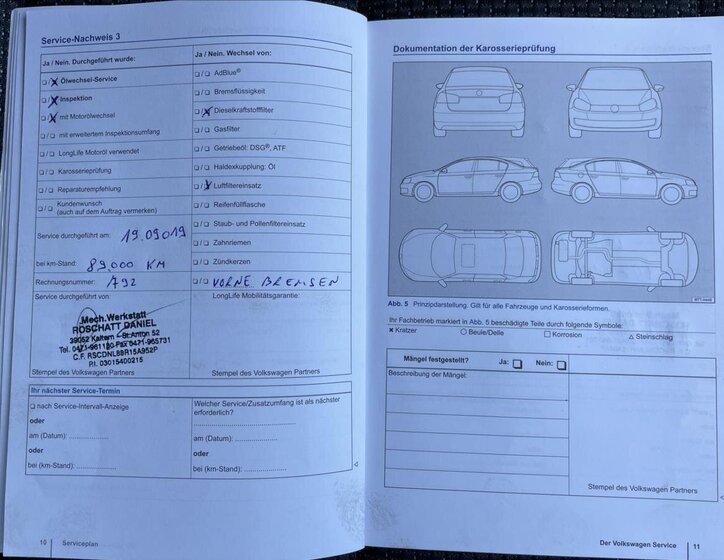 Service-Nachweis 3
Ja / Nein. Durchgeführt wurde:
❏/❏ Ölwechsel-Service
❏/❏ Inspektion
❏/❏ mit Motorölwechsel
❏/❏ mit erweitertem Inspektionsumfang
❏/❏ LongLife Motoröl verwendet
❏/❏ Karosserieprüfung
❏/❏ Reparaturempfehlung
❏/❏ Kundenwunsch
(auch auf dem Auftrag vermerken)
Service durchgeführt am: 19.09019
bei km-Stand: 89.000 KM
Rechnungsnummer: A92
Service durchgeführt von:
Mech.Werkstatt
ROSCHATT DANIEL
39052 Kaltern - St.Anton 52
Tel. 0471-961180-Fax 0471-965731
C.F. RSCDNL88R15A952P
P.I. 03015400215
Stempel des Volkswagen Partners
Ja / Nein. Wechsel von:
❏/❏ AdBlue®
❏/❏ Bremsflüssigkeit
❏/❏ Dieselkraftstofffilter
❏/❏ Gasfilter
❏/❏ Getriebeöl: DSG®, ATF
❏/❏ Haldexkupplung: Öl
❏/❏ Luftfiltereinsatz
❏/❏ Reifenfüllflasche
❏/❏ Staub- und Pollenfiltereinsatz
❏/❏ Zahnriemen
❏/❏ Zündkerzen
❏/❏ VORNE BREMSEN
LongLife Mobilitätsgarantie:
Stempel des Volkswagen Partners
Ihr nächster Service-Termin
❏ nach Service-Intervall-Anzeige
oder
am (Datum): ..................
oder
bei (km-Stand): ..................
Welcher Service/Zusatzumfang ist als nächster
erforderlich?
am (Datum): ..................
oder
bei (km-Stand): ..................
10 Serviceplan
Dokumentation der Karosserieprüfung
Abb. 5 Prinzipdarstellung. Gilt für alle Fahrzeuge und Karosserieformen.
Ihr Fachbetrieb markiert in Abb. 5 beschädigte Teile durch folgende Symbole:
✖ Kratzer ○ Beule/Delle □ Korrosion △ Steinschlag
Mängel festgestellt? Ja: ❏ Nein: ❏
Beschreibung der Mängel:
Stempel des Volkswagen Partners
Der Volkswagen Service 11